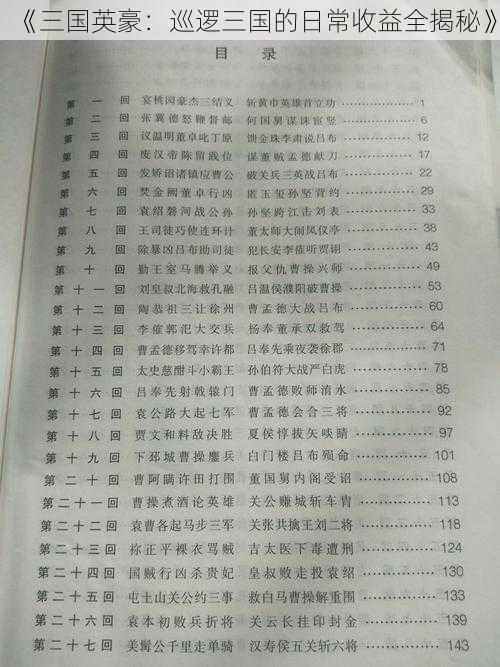 《三国英豪：巡逻三国的日常收益全揭秘》
目 录
第一回 宴桃园豪杰三结义 斩黄巾英雄首立功 1
第二回 张翼德怒鞭督邮 何国舅谋诛宦竖 6
第三回 议温明董卓叱丁原 馈金珠李肃说吕布 12
第四回 废汉帝陈留践位 谋董贼孟德献刀 17
第五回 发矫诏诸镇应曹公 破关兵三英战吕布 22
第六回 焚金阙董卓行凶 匿玉玺孙坚背约 29
第七回 袁绍磐河战公孙 孙坚跨江击刘表 33
第八回 王司徒巧使连环计 董太师大闹凤仪亭 38
第九回 除暴凶吕布助司徒 犯长安李傕听贾诩 43
第十回 勤王室马腾举义 报父仇曹操兴师 49
第十一回 刘皇叔北海救孔融 吕温侯濮阳破曹操 53
第十二回 陶恭祖三让徐州 曹孟德大战吕布 60
第十三回 李傕郭汜大交兵 杨奉董承双救驾 64
第十四回 曹孟德移驾幸许都 吕奉先乘夜袭徐郡 71
第十五回 太史慈酣斗小霸王 孙伯符大战严白虎 78
第十六回 吕奉先射戟辕门 曹孟德败师淯水 85
第十七回 袁公路大起七军 曹孟德会合三将 92
第十八回 贾文和料敌决胜 夏侯惇拔矢啖睛 97
第十九回 下邳城曹操鏖兵 白门楼吕布殒命 101
第二十回 曹阿瞒许田打围 董国舅内阁受诏 108
第二十一回 曹操煮酒论英雄 关公赚城斩车胄 113
第二十二回 袁曹各起马步三军 关张共擒王刘二将 118
第二十三回 祢正平裸衣骂贼 吉太医下毒遭刑 124
第二十四回 国贼行凶杀贵妃 皇叔败走投袁绍 130
第二十五回 屯土山关公约三事 救白马曹操解重围 133
第二十六回 袁本初败兵折将 关云长挂印封金 139
第二十七回 美髯公千里走单骑 汉寿侯五关斩六将 143